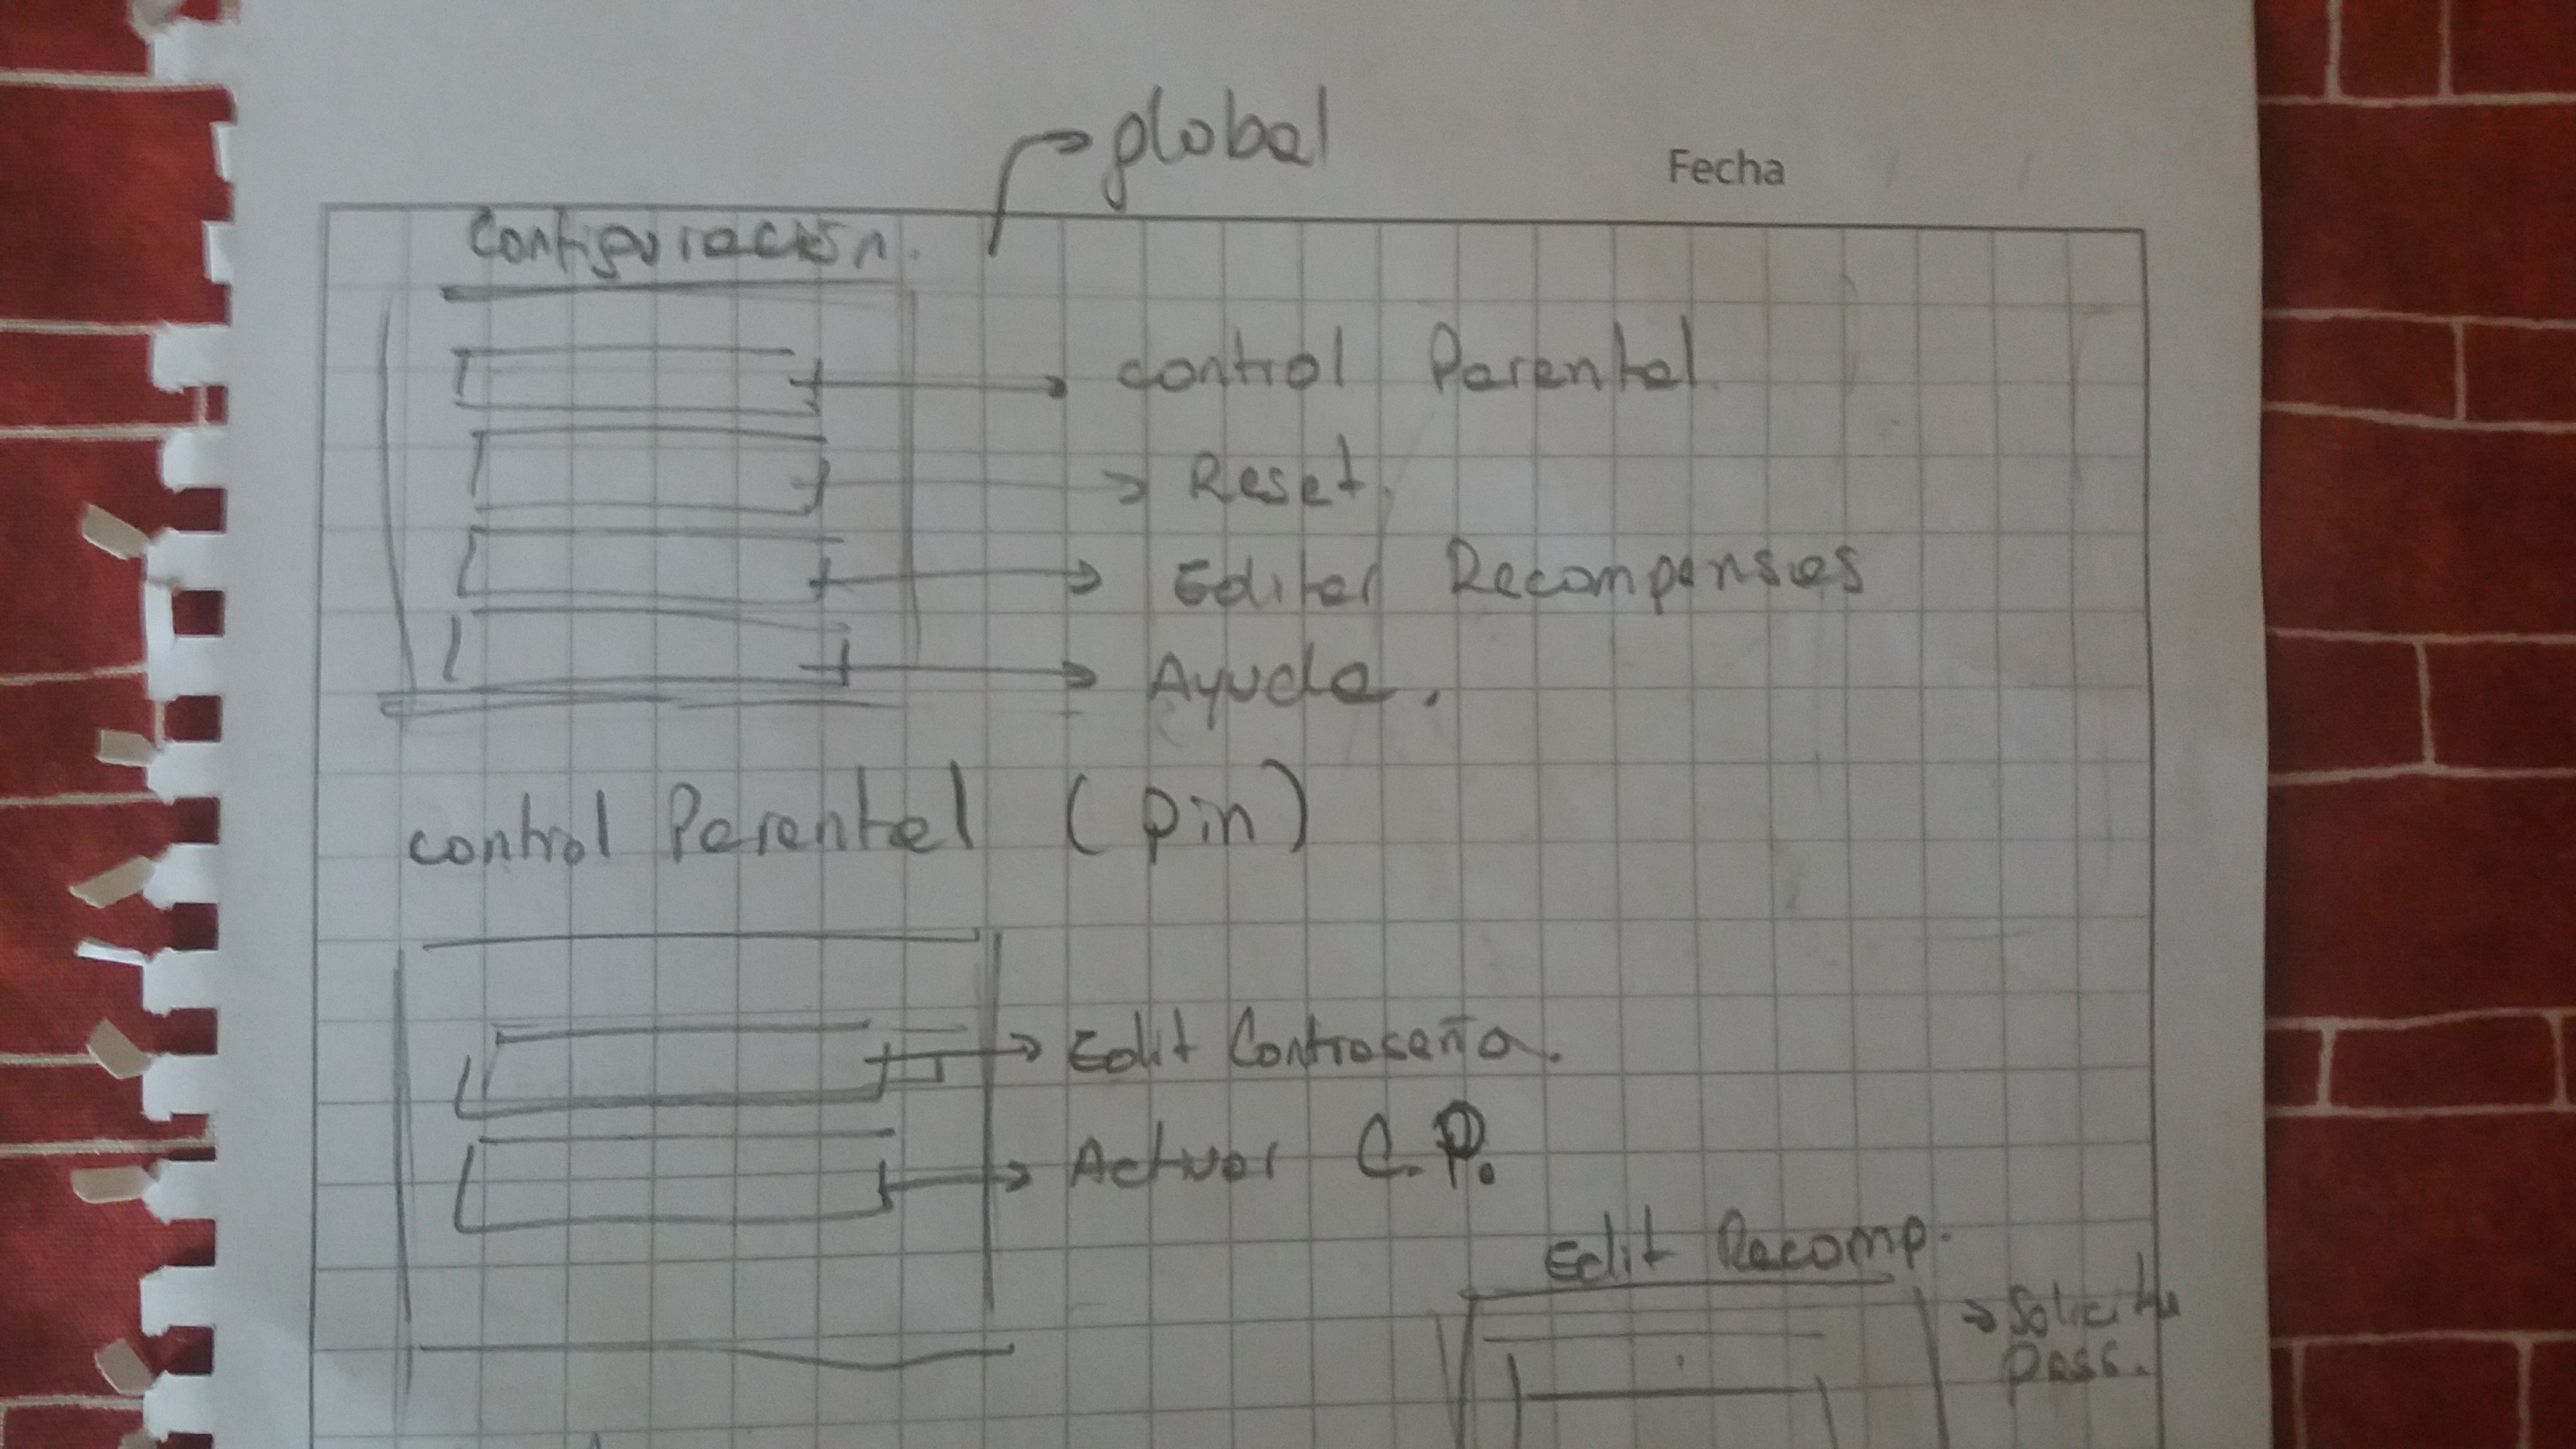 global
Fecha
Configuración.
control Parental
Reset.
Editar Recompensas
Ayuda.
control Parental (pin)
Edit Contraseña.
Activar C.P.
Edit Recomp.
→ Solicitu
pass.